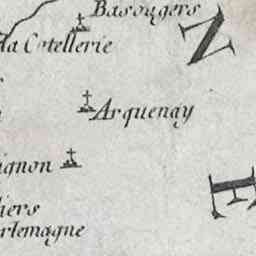 Basougers
la Cotellerie
N
Arquenay
ignon
E
iers
rlemagne